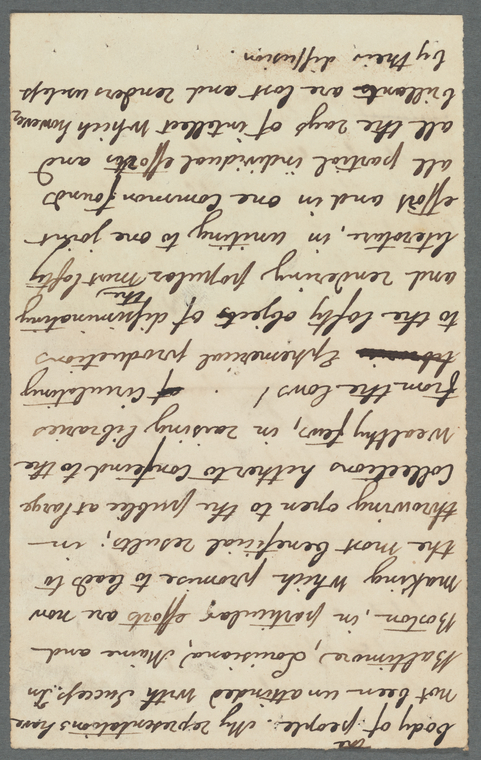 the
body of people. My representations have
not been unattended with success. In
Baltimore, Louisiana, Maine and
Boston, in particular, efforts are now
making which promise to lead to
the most beneficial results; in
throwing open to the public at large
Collections hitherto confined to the
wealthy few, in raising libraries
from the low! of circulating
Ephemerical productions
to the lofty objects of disseminating
the
and rendering popular most lofty
literature, in uniting to one joint
effort and in one common found
all partial individual efforts and
all the rays of intellect which however
brillants are lost and renders useless
by their diffusion.